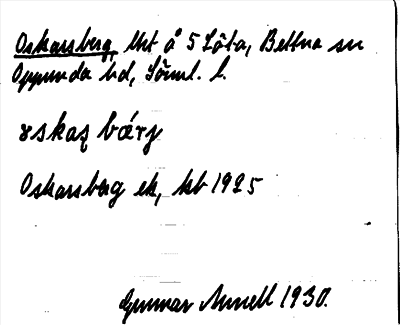 Oskarsberg, lht å 5 Löta, Bettna sn
Oppunda hd, Söml. l.
oskaʂ bærj
Oskarsberg ek, kb 1925
Gunnar Annell 1930.